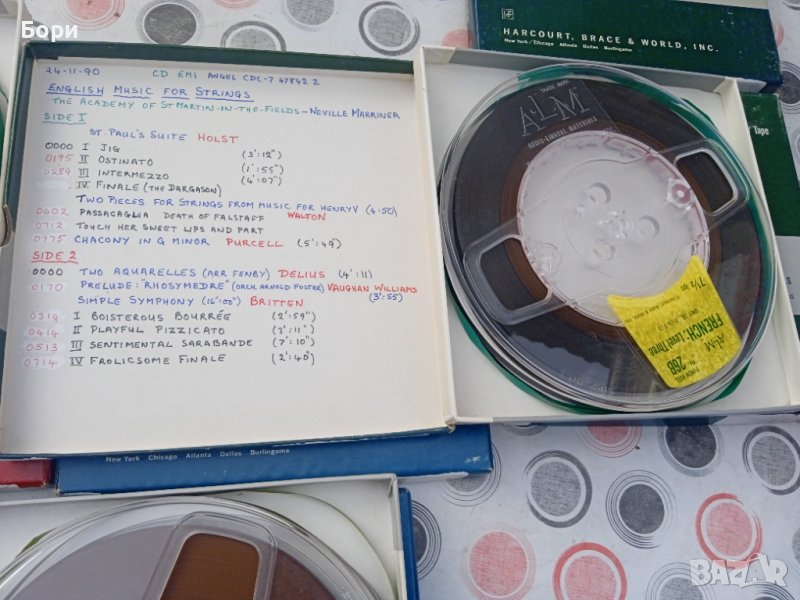 Бори
24-11-90 CD EMI ANGEL CDC-7 47842 2
ENGLISH MUSIC FOR STRINGS
THE ACADEMY OF ST MARTIN-IN-THE-FIELDS – NEVILLE MARRINER
SIDE I
ST. PAUL'S SUITE HOLST
0000 I JIG (3':12")
0195 II OSTINATO (1':55")
0289 III INTERMEZZO (4':07")
IV FINALE (THE DARGASON)
TWO PIECES FOR STRINGS FROM MUSIC FOR HENRY V (4:50)
0602 PASSACAGLIA DEATH OF FALSTAFF WALTON
0712 TOUCH HER SWEET LIPS AND PART
0775 CHACONY IN G MINOR PURCELL (5':49")
SIDE 2
0000 TWO AQUARELLES (ARR FENBY) DELIUS (4':11)
0170 PRELUDE: "RHOSYMEDRE" (ORCH ARNOLD FOSTER) VAUGHAN WILLIAMS (3':55)
SIMPLE SYMPHONY BRITTEN
0314 I BOISTEROUS BOURRÉE (2':59")
0414 II PLAYFUL PIZZICATO (3':11")
0513 III SENTIMENTAL SARABANDE (7':10")
0714 IV FROLICSOME FINALE (2':40")
HARCOURT, BRACE & WORLD, INC.
New York Chicago Atlanta Dallas Burlingame
Tape
TRADE MARK
A-LM
AUDIO-LINGUAL MATERIALS
7½ ips
A-LM
FRENCH: Level Three
26B
New York Chicago Atlanta Dallas Burlingame
BAZAR